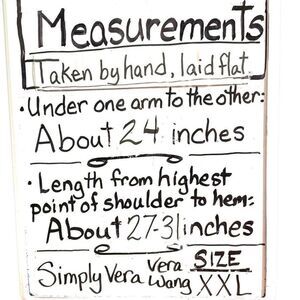 Measurements
Taken by hand, laid flat.
• Under one arm to the other:
About 24 inches
• Length from highest
point of shoulder to hem:
About 27-31 inches
Simply Vera Vera Wang SIZE XXL